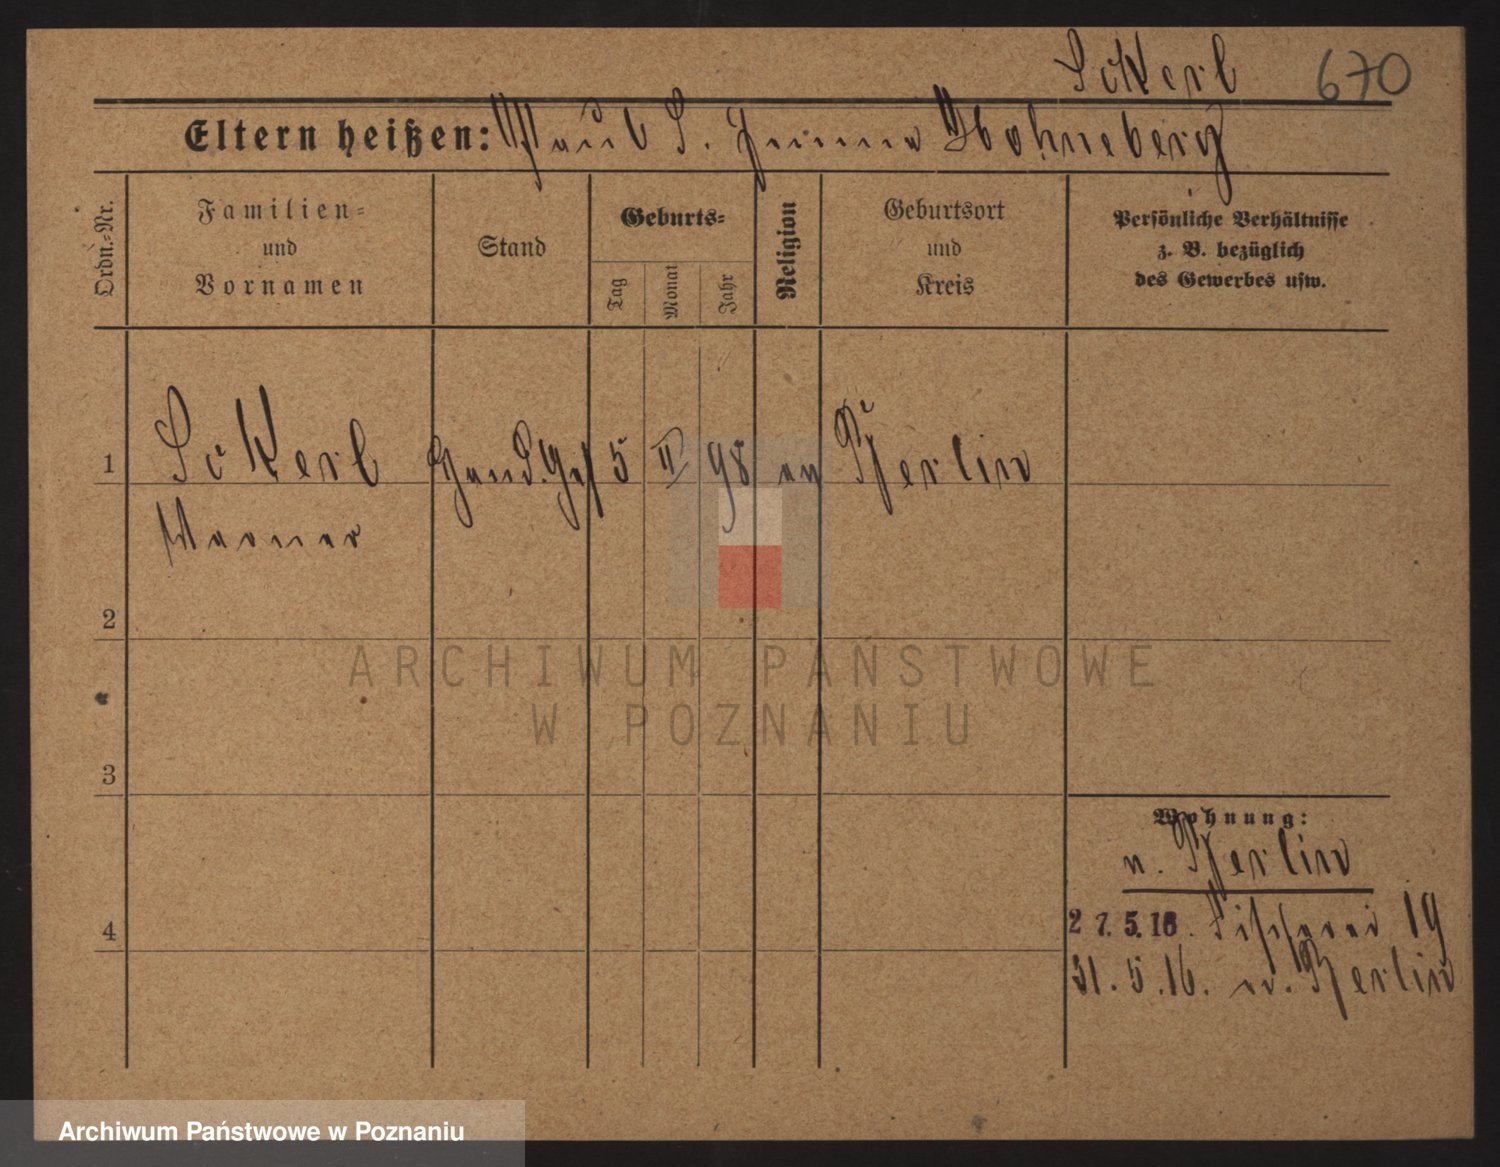 Sckerl 670
Eltern heißen: Paul S. Hohneberg
Ordn.-Nr.
Familien-
und
Vornamen
Stand
Geburts-
Tag
Monat
Jahr
Religion
Geburtsort
und
Kreis
Persönliche Verhältnisse
z. B. bezüglich
des Gewerbes usw.
1 Sckerl Hand. Geh 5 II 98 ev Berlin
Werner
2
3
4
Wohnung:
n. Berlin
27.5.16. Fischerei 19
31.5.16. n. Berlin
ARCHIWUM PAŃSTWOWE
W POZNANIU
Archiwum Państwowe w Poznaniu